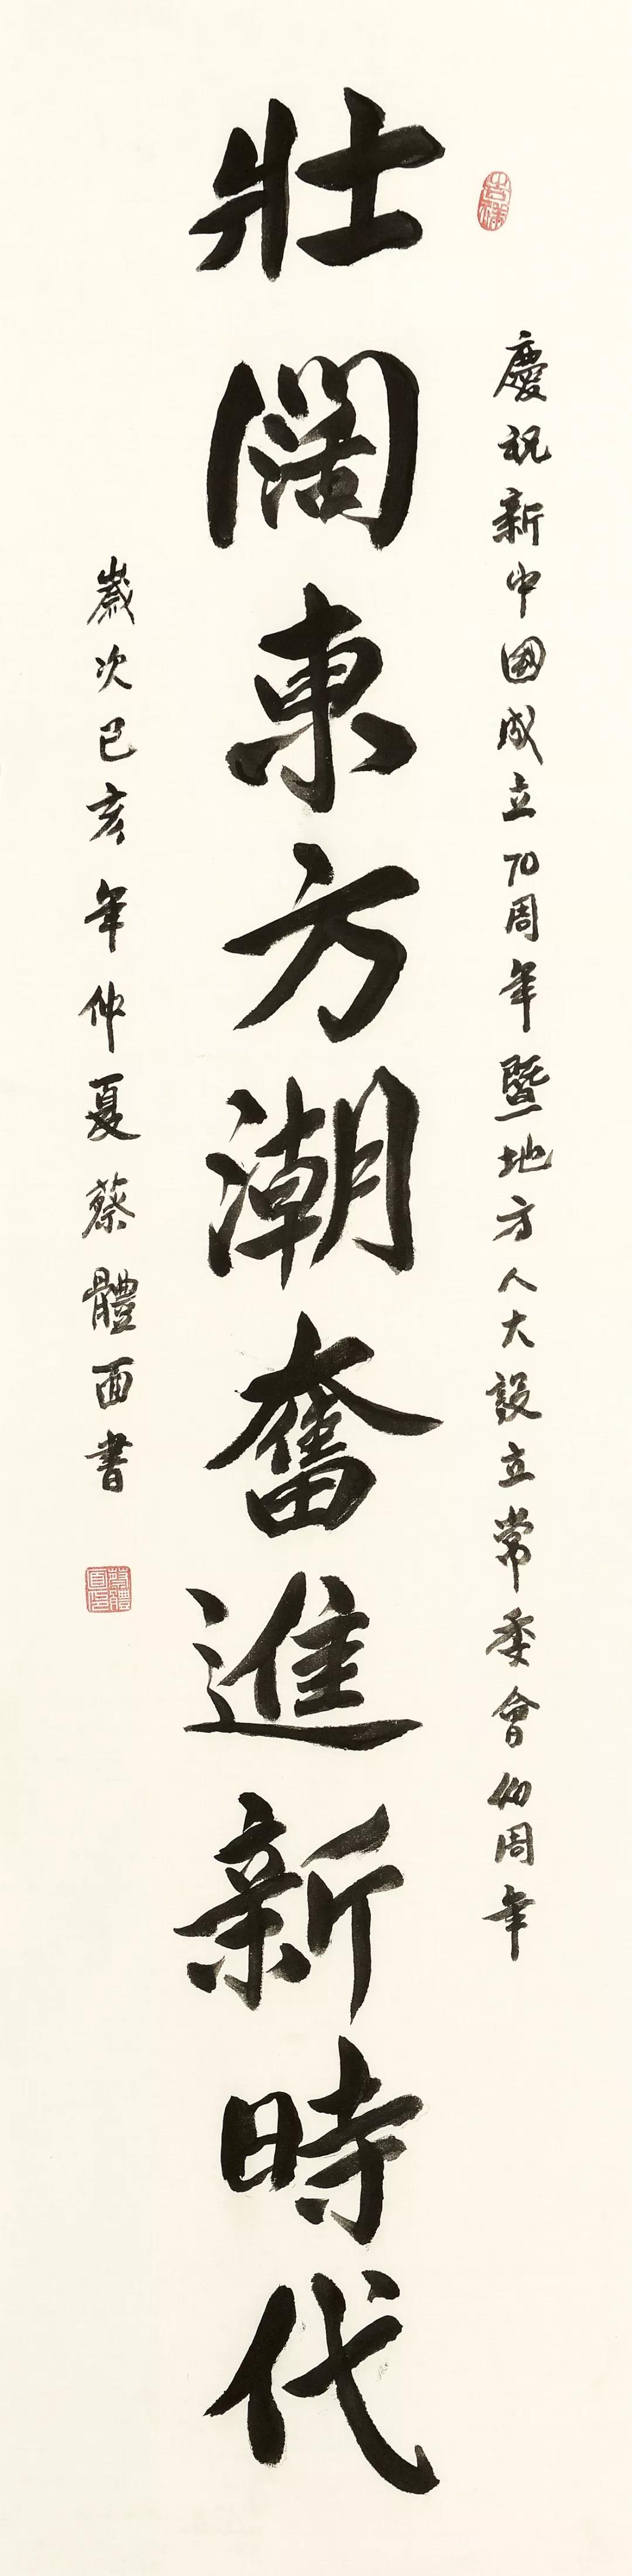 吉祥
慶祝新中國成立70周年暨地方人大設立常委會40周年
壯闊東方潮奮進新時代
歲次己亥年仲夏蔡體面書
蔡體面印